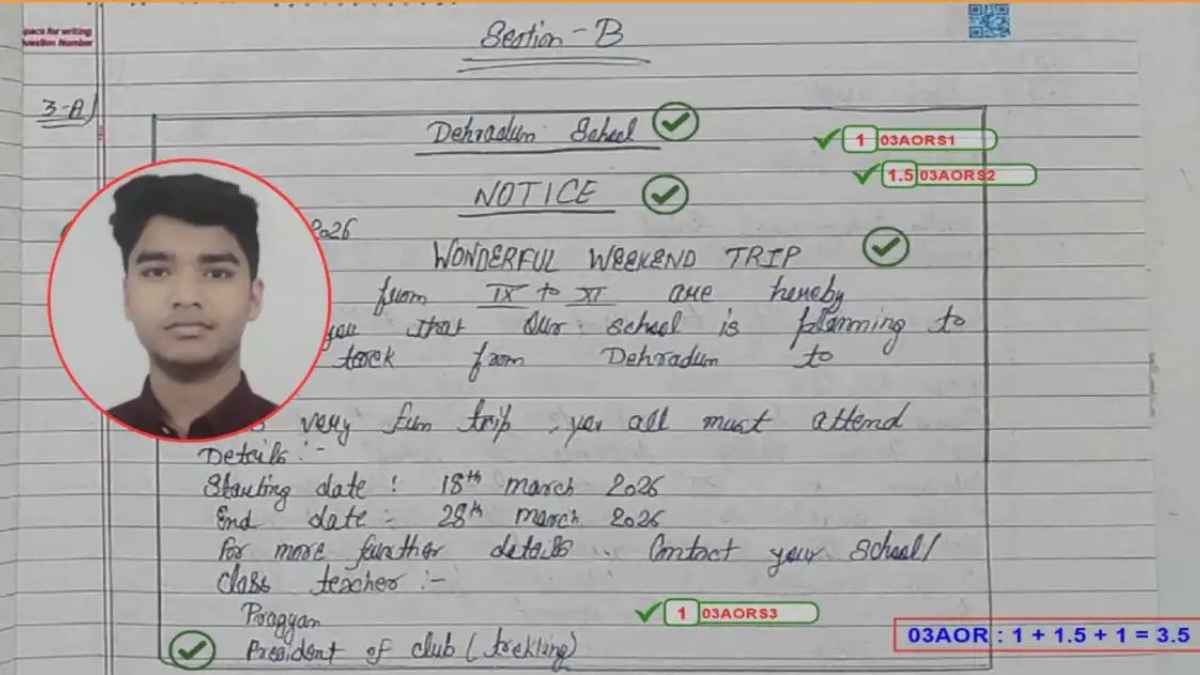 Space for writing
Question Number
Section - B
3-A)
Dehradun School
1 03AORS1
1.5 03AORS2
NOTICE
2026
WONDERFUL WEEKEND TRIP
from IX to XI are hereby
you that Our school is planning to
from Dehradun to
very fun trip, you all must attend
Details :-
Starting date : 18th march 2026
End date :- 28th march 2026
For more further details . Contact your school/
class teacher :-
Pragyan
1 03AORS3
President of club (trekking)
03AOR : 1 + 1.5 + 1 = 3.5